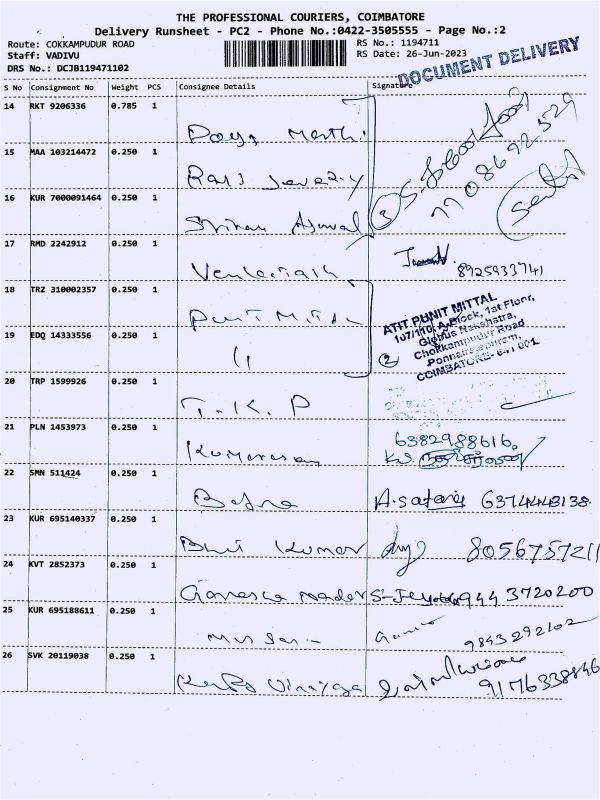 THE PROFESSIONAL COURIERS, COIMBATORE
Delivery Runsheet - PC2 - Phone No.:0422-3505555 - Page No.:2
Route: COKKAMPUDUR ROAD
Staff: VADIVU
DRS No.: DCJB119471102
RS No.: 1194711
RS Date: 26-Jun-2023
DOCUMENT DELIVERY
S No Consignment No Weight PCS Consignee Details Signature
14 RKT 9206336 0.785 1
15 MAA 103214472 0.250 1
3
7708672529
16 KUR 7000091464 0.250 1
17 RMD 2242912 0.250 1
8925933741
18 TRZ 310002357 0.250 1 Punit Mittal
ATIT PUNIT MITTAL
107/110, A-Block, 1st Floor,
Globus Nakshatra,
Chokkampudur Road
Ponnaiarajapuram,
COIMBATORE- 641 001
2
19 EDQ 14333556 0.250 1 11
20 TRP 1599926 0.250 1 T.K.P
21 PLN 1453973 0.250 1 Kumaresan
6382988616
22 SMN 511424 0.250 1 Bafna A.sataru 6374448138
23 KUR 695140337 0.250 1 Kumar 8056757211
24 KVT 2852373 0.250 1 Ganesa nadar 944 3720200
25 KUR 695188611 0.250 1 9843292102
26 SVK 20119038 0.250 1 Vinayaga 9176338846